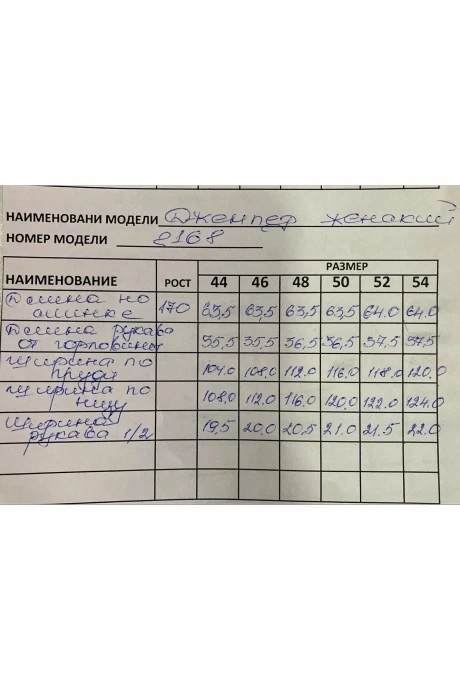 НАИМЕНОВАНИ МОДЕЛИ Джемпер женский
НОМЕР МОДЕЛИ 2168
НАИМЕНОВАНИЕ РОСТ РАЗМЕР
44 46 48 50 52 54
Длина по спинке 170 63,5 63,5 63,5 63,5 64.0 64.0
Длина рукава от горловины 35,5 35,5 36,5 36,5 37,5 37,5
Ширина по груди 104.0 108.0 112.0 116.0 118.0 120.0
Ширина по низу 108.0 112.0 116.0 120.0 122.0 124.0
Ширина рукава 1/2 19,5 20.0 20,5 21.0 21.5 22.0